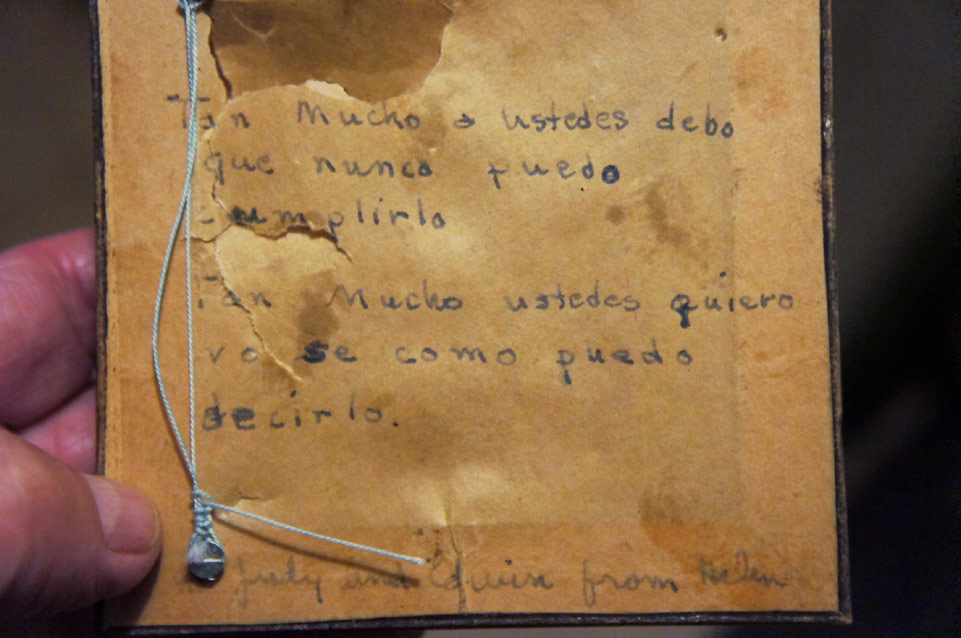 Tan Mucho a ustedes debo
que nunca puedo
cumplirlo
Tan Mucho ustedes quiero
no se como puedo
decirlo.
Judy and Edwin from Helen